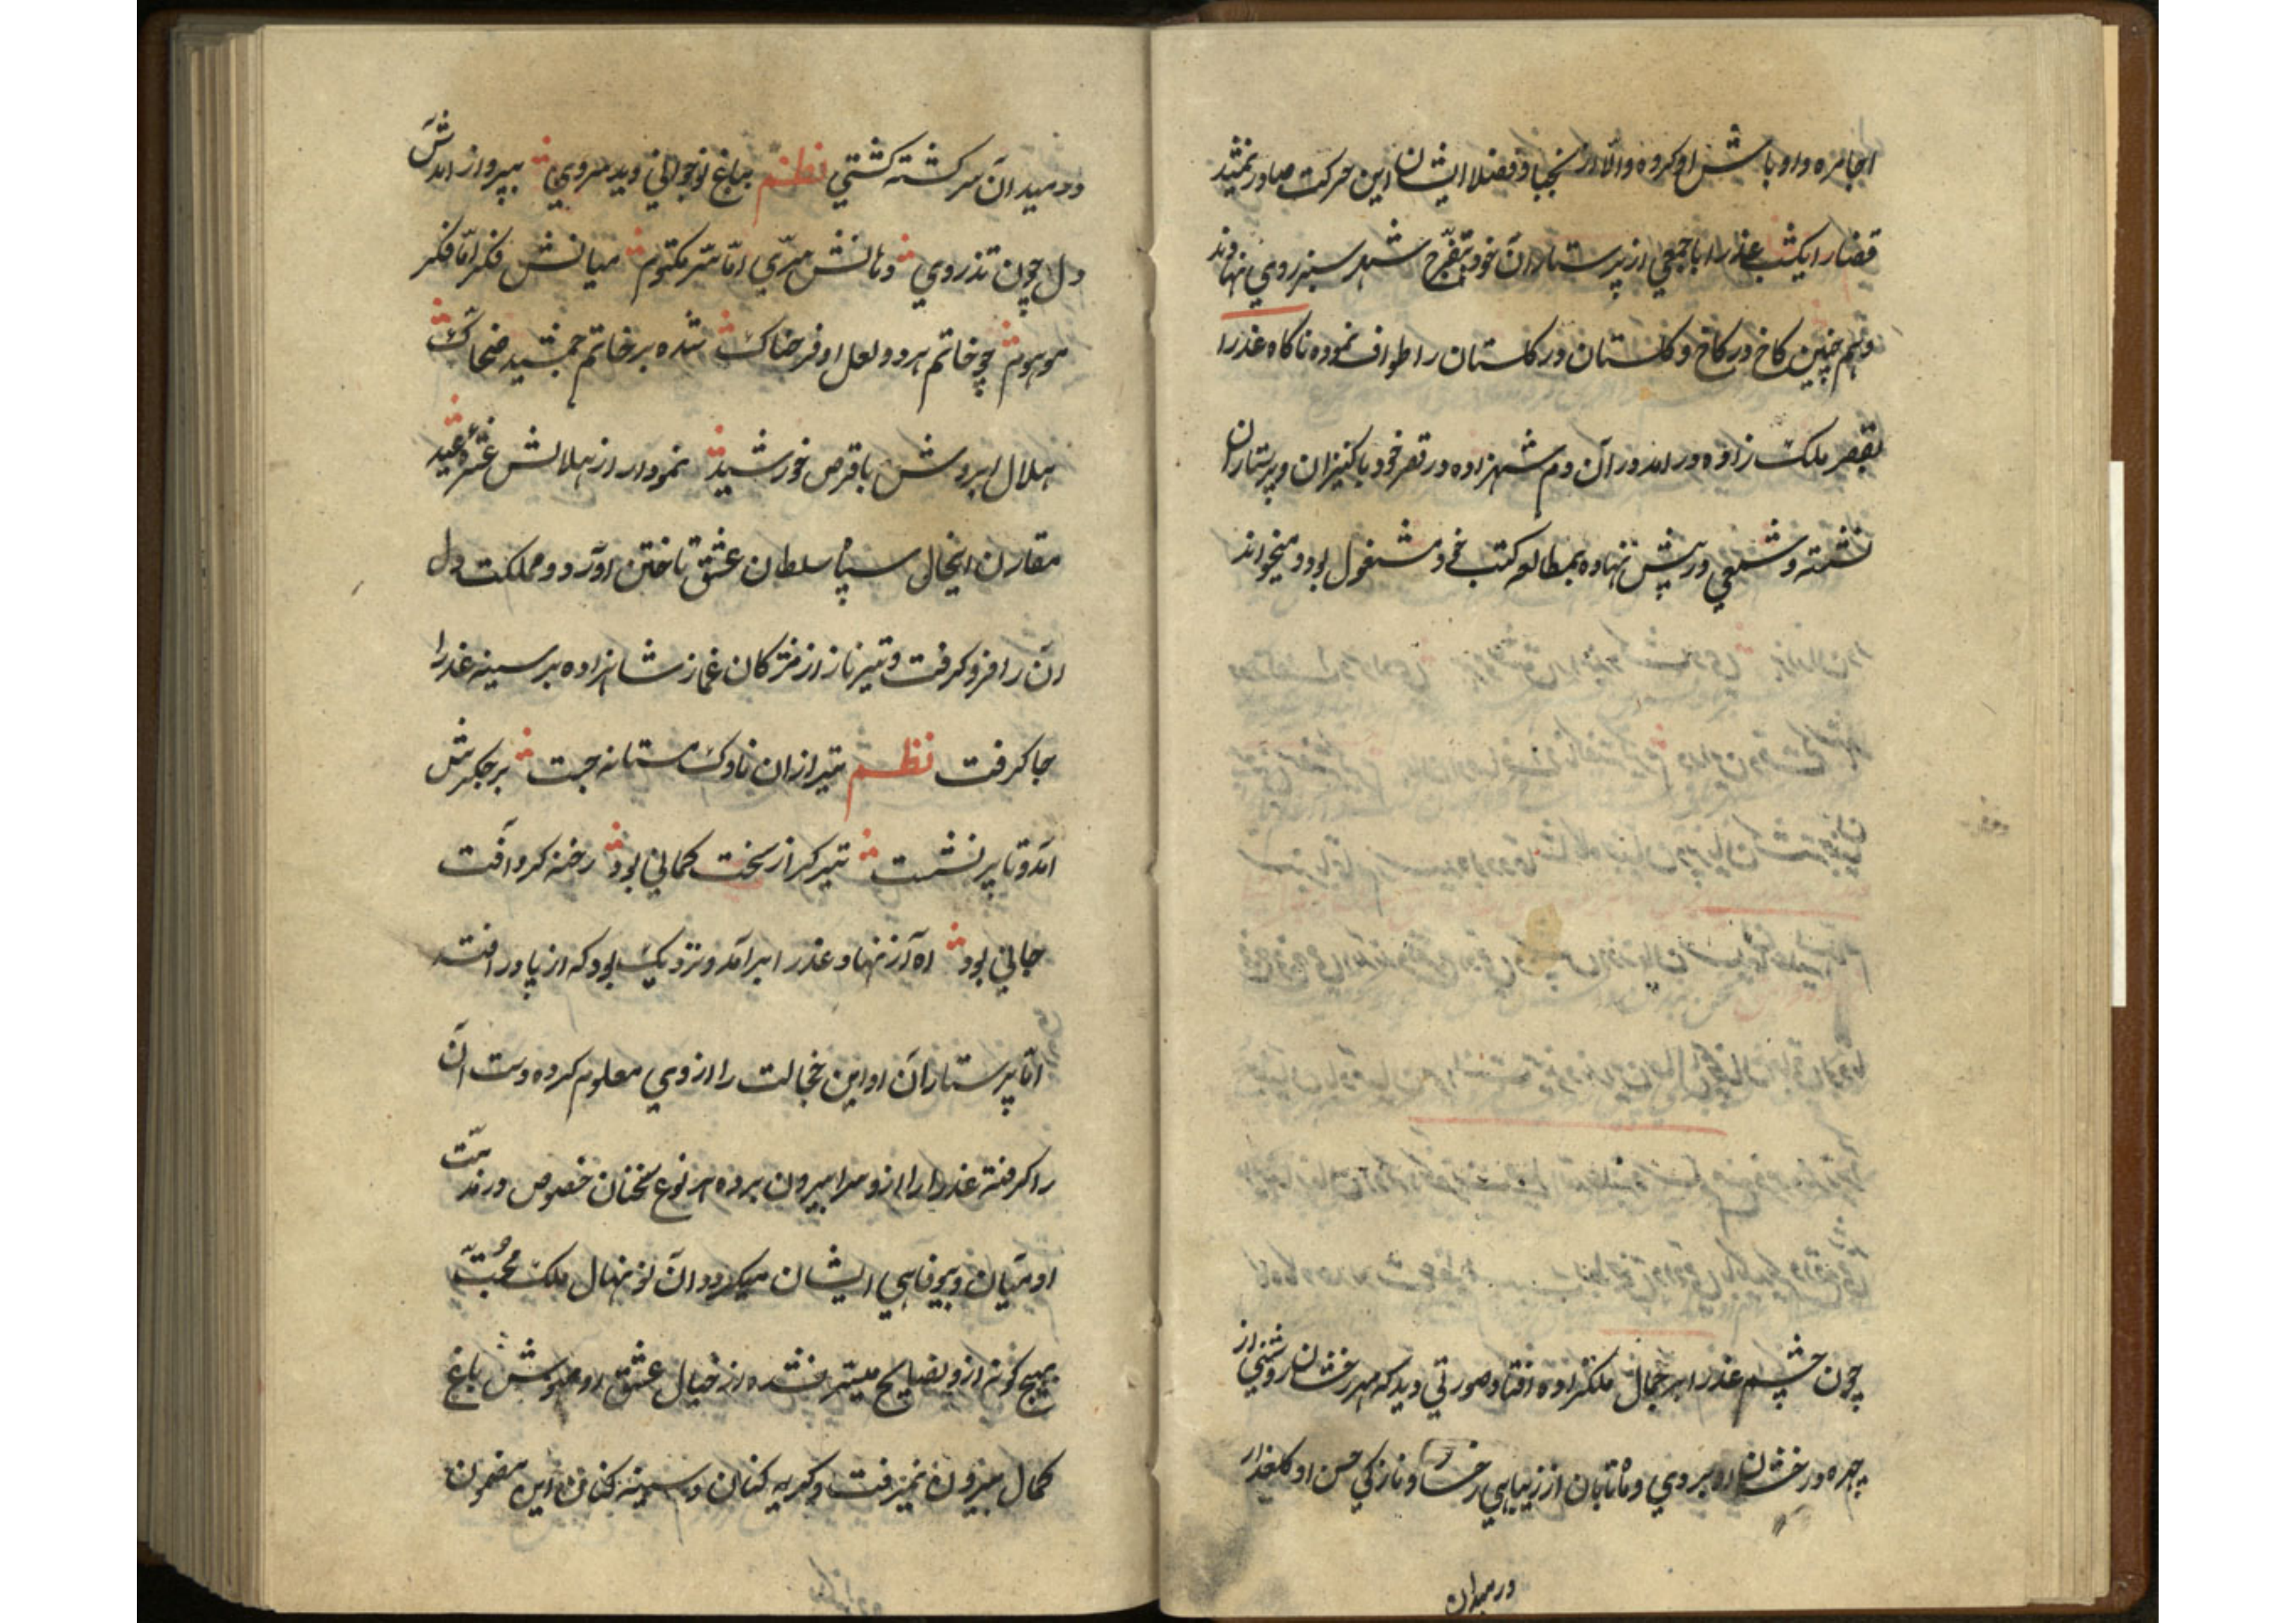 اجامره و اوباش او کرده والا از نجبا و فضلا ایشان این حرکت صادر نمیشد
قضارا یکشب عذرا با جمعی از پرستاران خود بتفرج شهر سبز روی نهادند
و همچنین کاخ در کاخ و کلستان در کلستان را طواف نموده ناکاه عذرا
بقصر ملک زاده در امد در آن دم شهزاده در قصر خود با کنیزان و پرستاران
نشسته و شمعی در پیش نهاده بمطالعه کتب خود مشغول بود و میخواند
چون چشم عذرا بر جمال ملکزاده افتاد صورتی دید که مهر رخشان روشنی از
چهره درخشان او بروی و ماه تابان از زیبایی رخسار و نازکی حسن او کلعذار
در میدان
در میدان سرکشته کشتی نظم بباغ نوجوانی دید سروی بپرواز امدش
دل چون تذروی دهانش سرّی امّا سرّ مکتوم میانش فکر امّا فکر
موهوم چو خاتم هر دو لعل او فرحناک شده بر خاتم جمشید ضحاک
هلال ابروش با قرص خورشید نمودار از هلالش غرّه عید
مقارن اینحال سپاه سلطان عشق تاختن آورد و مملکت دل
آن را فرو کرفت و تیر ناز از مژکان غماز شاهزاده بر سینه عذرا
جا کرفت نظم تیر ازان ناوک مستانه جست بر جکرش
امد و تا پر نشست تیر کز از سخت کمانی بود رخنه کر و آفت
جانی بود اه از نهاد عذرا برآمد و نزدیک بود که از پا در افتد
امّا پرستاران او این خجالت را از وی معلوم کرده دست آن
را کرفته عذرا را از سرا بیرون برده هر نوع سخنان خصوص در مذمّت
ادمیان و بیوفایی ایشان میکرد و آن نو نهال ملک محبّت
بهیچ کونه ازو نصایح میسّر نشده از خیال عشق او باغ
کمال بیرون نمیرفت و کریه کنان و سینه کنان این مضمون